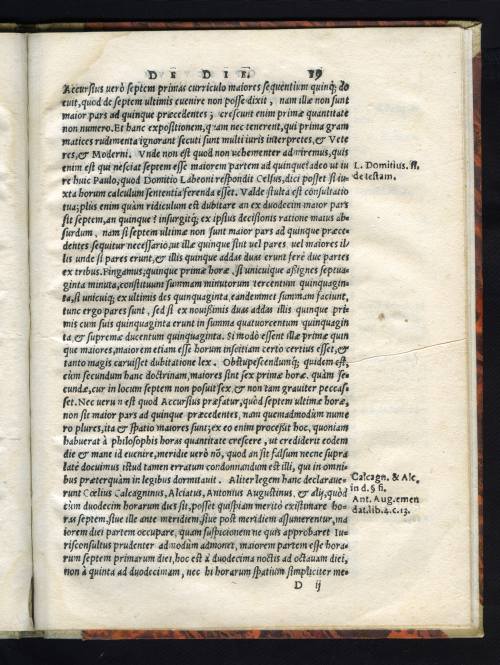 DE DIE. 19
Accursius uerò septem primas curriculo maiores sequentium quinq; do
cuit, quod de septem ultimis euenire non posse dixit, nam illæ non sunt
maior pars ad quinque præcedentes; crescunt enim primæ quantitate
non numero. Et hanc expositionem, quam nec tenerent, qui prima gram
matices rudimenta ignorant secuti sunt multi iuris interpretes, & Vete
res, & Moderni. Vnde non est quod uehementer admiremus, quis
enim est qui nesciat septem esse maiorem partem ad quinque? adeo ut iu
re huic Paulo; quod Domitio Labeoni respondit Celsus, dici posset si iu-
xta horum calculum sententia ferenda esset. Valde stulta est consultatio
tua; plus enim quàm ridiculum est dubitare an ex duodecim maior pars
sit septem, an quinque? insurgitq; ex ipsius decisionis ratione maius ab-
surdum, nam si septem ultimæ non sunt maior pars ad quinque præce-
dentes sequitur necessario, ut illæ quinque sint uel pares uel maiores il-
lis unde si pares erunt, & illis quinque addas duas erunt ferè duæ partes
ex tribus. Fingamus; quinque primæ horæ, si unicuique assignes septua-
ginta minuta, constituunt summam minutorum tercentum quinquagin-
ta, si unicuiq; ex ultimis des quinquaginta, eandemmet summam faciunt,
tunc ergo pares sunt, sed si ex nouissimis duas addas illis quinque pri-
mis cum suis quinquaginta erunt in summa quatuorcentum quinquagin
ta, & supremæ ducentum quinquaginta. Si modò essent illæ primæ quin
que maiores, maiorem etiam esse horum inscitiam certo certius esset, &
tanto magis caruisset dubitatione lex. Obstupescendumq; quidem est,
cùm secundum hanc doctrinam, maiores sint sex primæ horæ, quàm se-
cundæ, cur in locum septem non posuit sex, & non tam grauiter peccas-
set. Nec uerum est quod Accursius præfatur, quòd septem ultimæ horæ,
non sit maior pars ad quinque præcedentes, nam quemadmodum nume
ro plures, ita & spatio maiores sunt; ex eo enim processit hoc, quoniam
habuerat à philosophis horas quantitate crescere, ut crediderit eodem
die & mane id euenire, meridie uerò nõ, quod an sit falsum necne supra
latè docuimus istud tamen erratum condonnandum est illi, qui in omni-
bus præterquàm in legibus dormitauit. Aliter legem hanc declaraue-
runt Cœlius Calcagninus, Alciatus, Antonius Augustinus, & alij, quòd
cùm duodecim horarum dies sit, posset quispiam meritò existimare ho-
ras septem, siue ille ante meridiem, siue post meridiem assumerentur, ma
iorem diei partem occupare, quam suspicionem ne quis approbaret Iu-
risconsultus prudenter admodùm admonet, maiorem partem esse hora-
rum septem primarum diei, hoc est à duodecima noctis ad octauam diei,
non à quinta ad duodecimam, nec hi horarum spatium simpliciter me-
D ij
L. Domitius. ff.
de testam.
Calcagn. & Alc.
in d. § si.
Ant. Aug. emen
dat. lib. 4. c. 13.